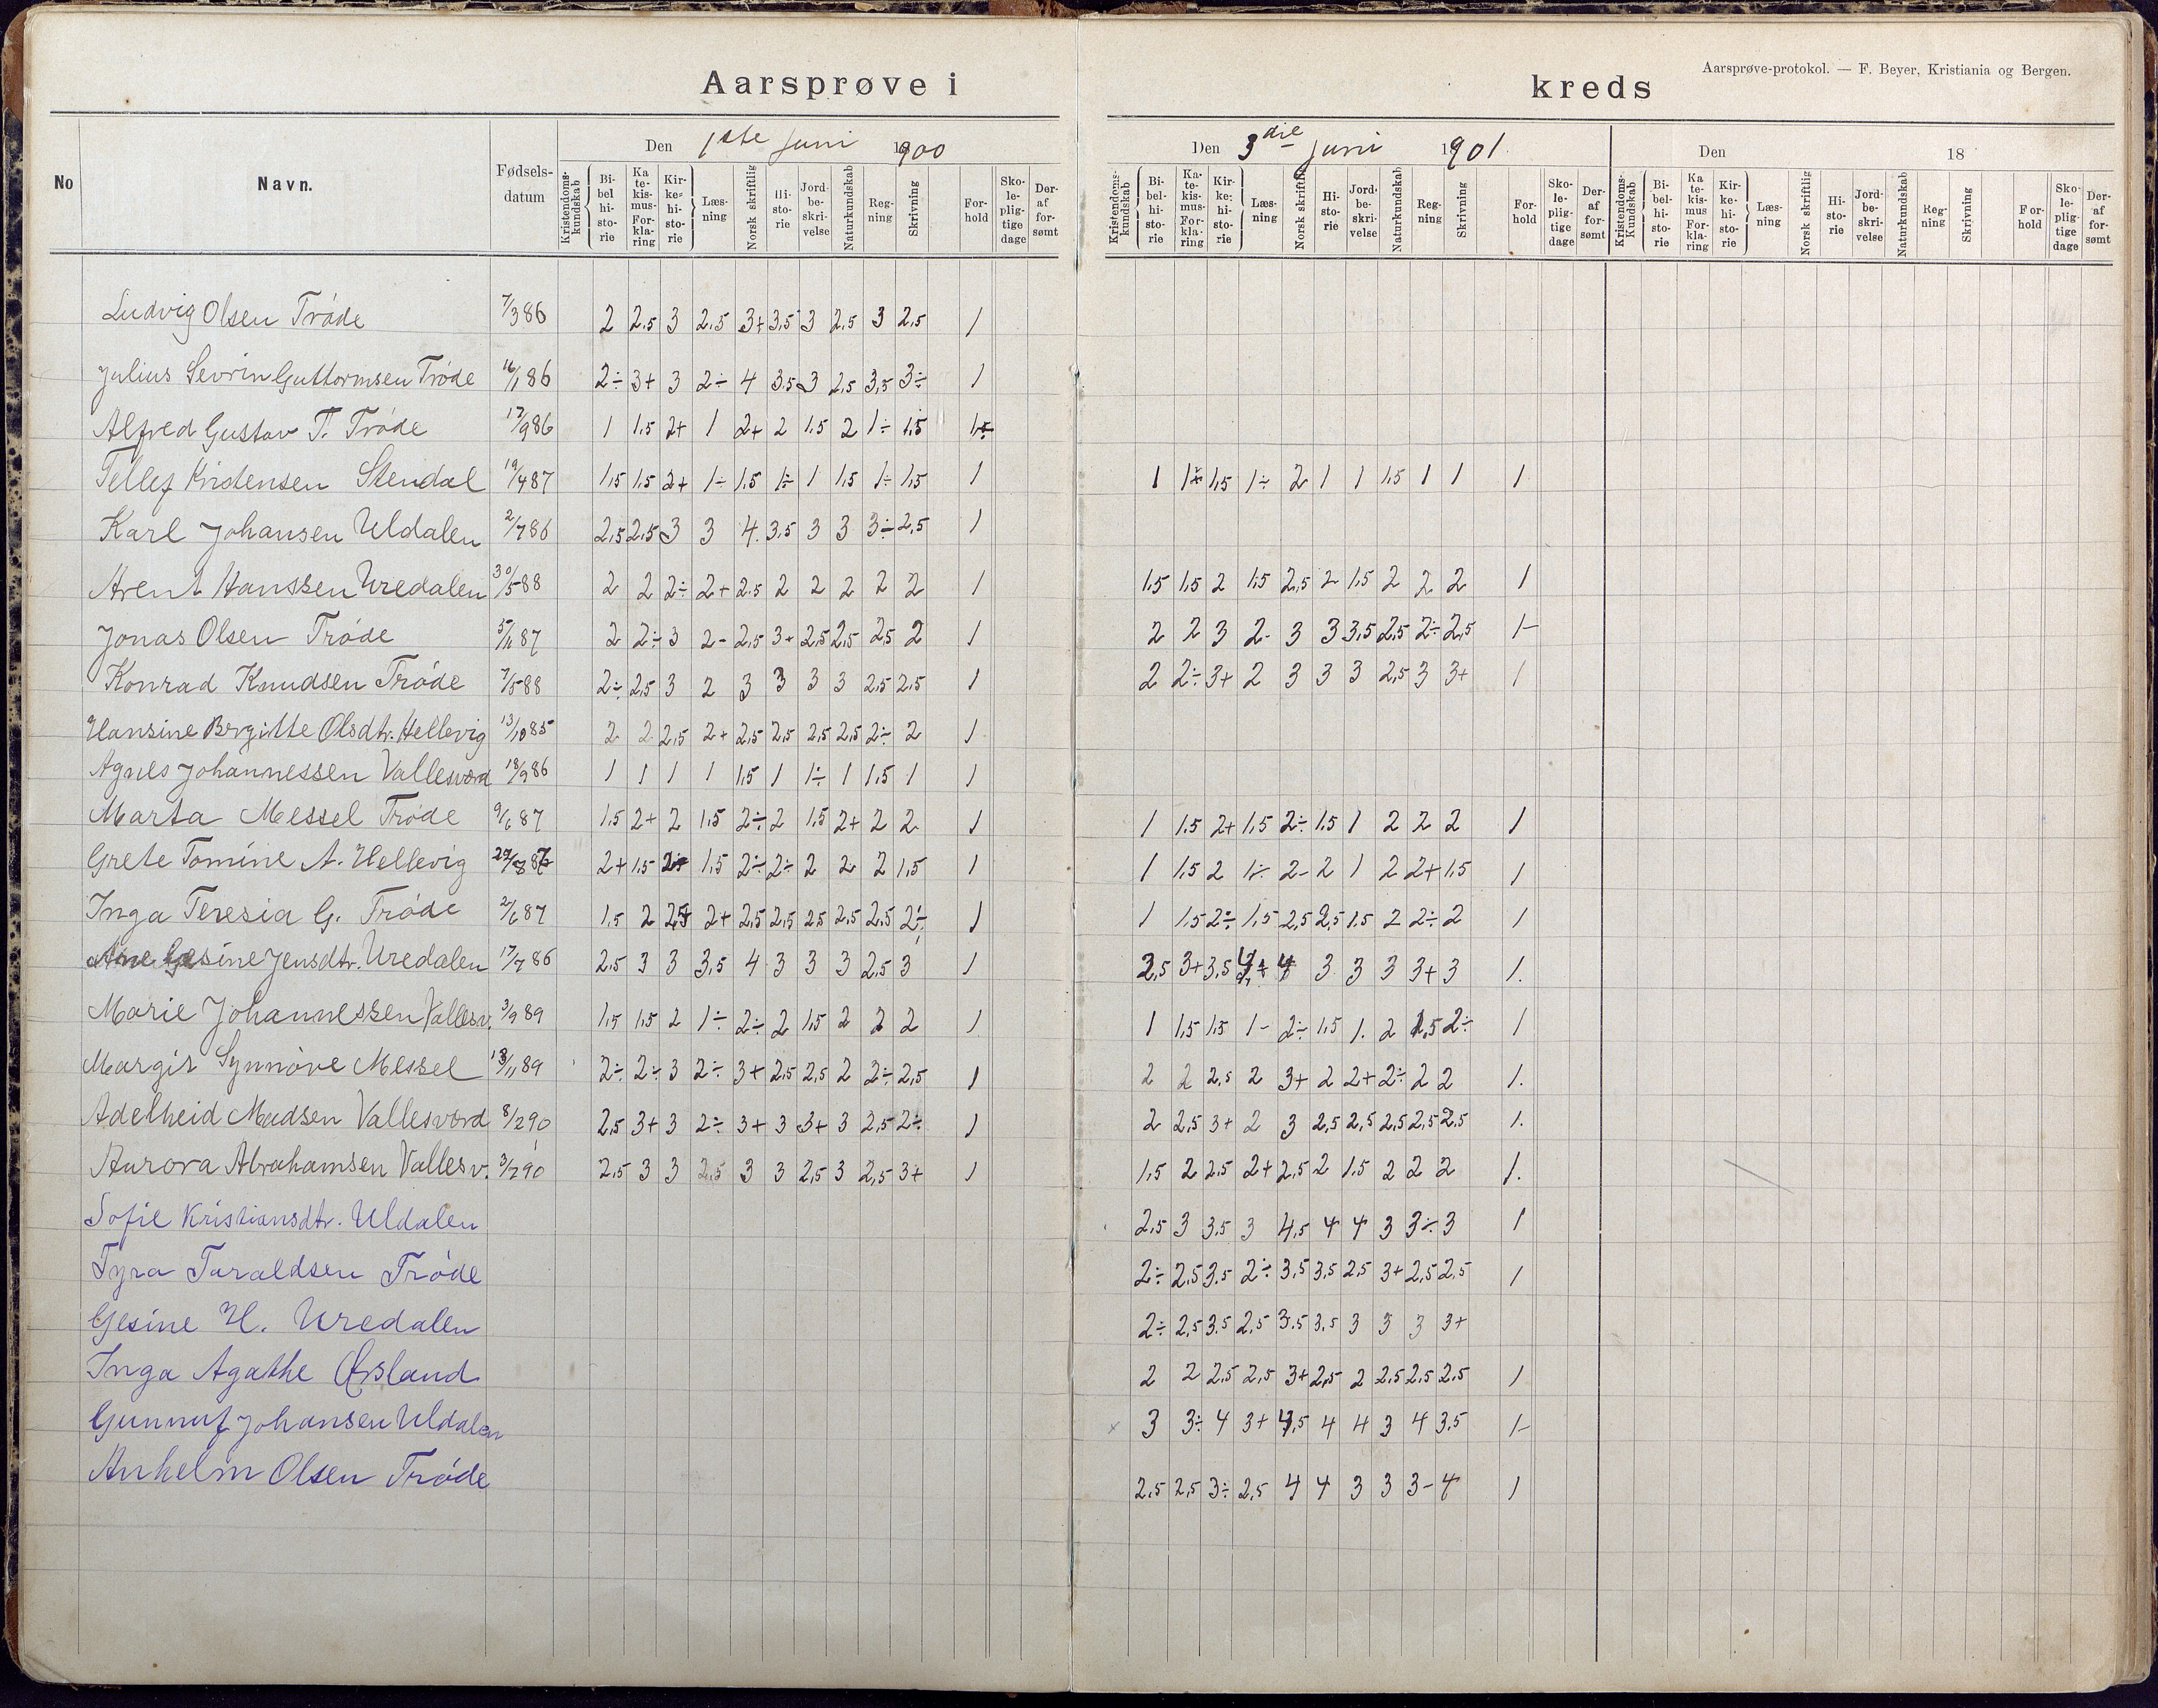 Aarsprøve i kreds
Aarsprøve-protokol. — F. Beyer, Kristiania og Bergen.
Den 1ste Juni 1900 Den 3die Juni 1901 Den 18
No Navn. Fødsels-datum Kristendoms-kundskab Bi-bel hi-sto-rie Ka te-kis-mus-For-kla-ring Kir-ke-hi-sto-rie Læs-ning Norsk skriftlig Hi-sto-rie Jord-be-skri-velse Naturkundskab Reg-ning Skrivning For-hold Sko-le-plig-tige dage Der-af for-sømt Kristendoms-kundskab Bi-bel-hi-sto-rie Ka-te-kis-mus-For-kla-ring Kir-ke-hi-sto-rie Læs-ning Norsk skriftlig Hi-sto-rie Jord-be-skri-velse Naturkundskab Reg-ning Skrivning For-hold Sko-le-plig-tige dage Der-af for-sømt Kristendoms-Kundskab Bi-bel-hi-sto-rie Ka te-kis-mus For-kla-ring Kir-ke-hi-sto-rie Læs-ning Norsk skriftlig Hi-sto-rie Jord-be-skri-velse Naturkundskab Reg-ning Skrivning For-hold Sko-le-plig-tige dage Der-af for-sømt
Ludvig Olsen Trøde 7/3 86 2 2,5 3 2,5 3+ 3,5 3 2,5 3 2,5 1
Julius Sevrin Guttormsen Trøde 16/1 86 2÷ 3+ 3 2÷ 4 3,5 3 2,5 3,5 3÷ 1
Alfred Gustav T. Trøde 17/9 86 1 1,5 2+ 1 2+ 2 1,5 2 1÷ 1,5 1÷
Tellef Kristensen Stendal 19/4 87 1,5 1,5 2+ 1÷ 1,5 1÷ 1 1,5 1÷ 1,5 1 1 1÷ 1,5 1÷ 2 1 1 1,5 1 1 1
Karl Johansen Uldalen 2/7 86 2,5 2,5 3 3 4. 3,5 3 3 3÷ 2,5 1
Arent Hanssen Uredalen 30/5 88 2 2 2÷ 2+ 2,5 2 2 2 2 2 1 1,5 1,5 2 1,5 2,5 2 1,5 2 2 2 1
Jonas Olsen Trøde 5/11 87 2 2÷ 3 2- 2,5 3+ 2,5 2,5 2,5 2 1 2 2 3 2- 3 3 3,5 2,5 2÷ 2,5 1-
Konrad Knudsen Trøde 7/5 88 2÷ 2,5 3 2 3 3 3 3 2,5 2,5 1 2 2÷ 3+ 2 3 3 3 2,5 3 3+ 1
Hansine Brgitte Olsdtr. Hellevig 13/10 85 2 2 2,5 2+ 2,5 2,5 2,5 2,5 2÷ 2 1
Agnes Johannessen Vallesværd 18/9 86 1 1 1 1 1,5 1 1÷ 1 1,5 1 1
Marta Messel Trøde 9/6 87 1,5 2+ 2 1,5 2÷ 2 1,5 2+ 2 2 1 1 1,5 2+ 1,5 2÷ 1,5 1 2 2 2 1
Grete Tomine A. Hellevig 2+ 1,5 2÷ 1,5 2÷ 2÷ 2 2 2 1,5 1 1 1,5 2 1÷ 2- 2 1 2 2+ 1,5 1
Inga Teresia G. Trøde 2/6 87 1,5 2 2,5 2+ 2,5 2,5 2,5 2,5 2,5 2÷ 1 1 1,5 2÷ 1,5 2,5 2,5 1.5 2 2÷ 2 1
Ane Gesine Jensdtr. Uredalen 17/7 86 2,5 3 3 3,5 4 3 3 3 2,5 3 1 2,5 3+ 3,5 4 3 3 3 3+ 3 1.
Marie Johannessen Vallesv. 3/9 89 1,5 1,5 2 1÷ 2÷ 2 1,5 2 2 2 1 1 1,5 1,5 1- 2÷ 1,5 1. 2 1,5 2÷ 1
Margit Synnøve Messel 13/11 89 2÷ 2÷ 3 2÷ 3+ 2,5 2,5 2 2÷ 2,5 1 2 2 2,5 2 3+ 2 2+ 2÷ 2 2 1.
Adelheid Madsen Vallesværd 8/2 90 2,5 3+ 3 2÷ 3+ 3 3+ 3 2,5 2÷ 1 2 2,5 3+ 2 3 2,5 2,5 2,5 2,5 2,5 1.
Aurora Abrahamsen Vallesv. 3/2 90 2,5 3 3 2,5 3 3 2,5 3 2,5 3+ 1 1,5 2 2,5 2+ 2,5 2 1,5 2 2 2 1.
Sofie Kristiansdtr. Uldalen 2,5 3 3,5 3 4,5 4 4 3 3÷ 3 1
Tyra Taraldsen Trøde 2÷ 2,5 3,5 2÷ 3,5 3,5 2,5 3+ 2,5 2,5 1
Gesine H. Uredalen 2÷ 2,5 3,5 2,5 3,5 3,5 3 3 3 3+
Inga Agathe Øisland 2 2 2,5 2,5 3+ 2,5 2 2,5 2,5 2,5 1
Gunnuf Johansen Uldalen 3 3÷ 4 3+ 4,5 4 4 3 4 3,5 1-
Anhelm Olsen Trøde 2,5 2,5 3÷ 2,5 4 4 3 3 3- 4 1